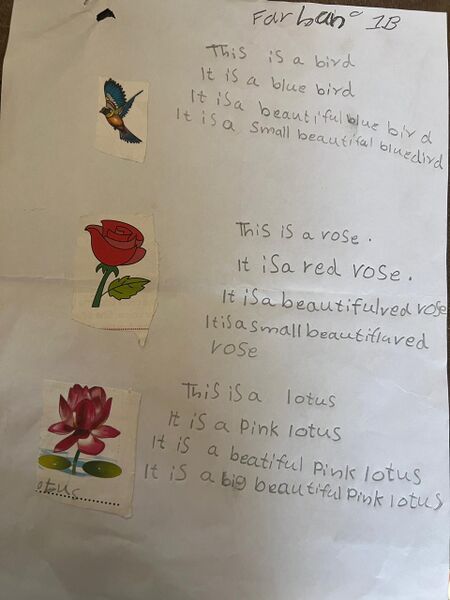 Farhan 1B
This is a bird
It is a blue bird
It is a beautiful blue bird
It is a small beautiful blue dird
This is a rose.
It is a red rose.
It is a beautiful ved rose
It is a small beautifl ured
rose
This is a lotus
It is a Pink lotus
It is a beatiful Pink lotus
It is a big beautiful Pink lotus
otus